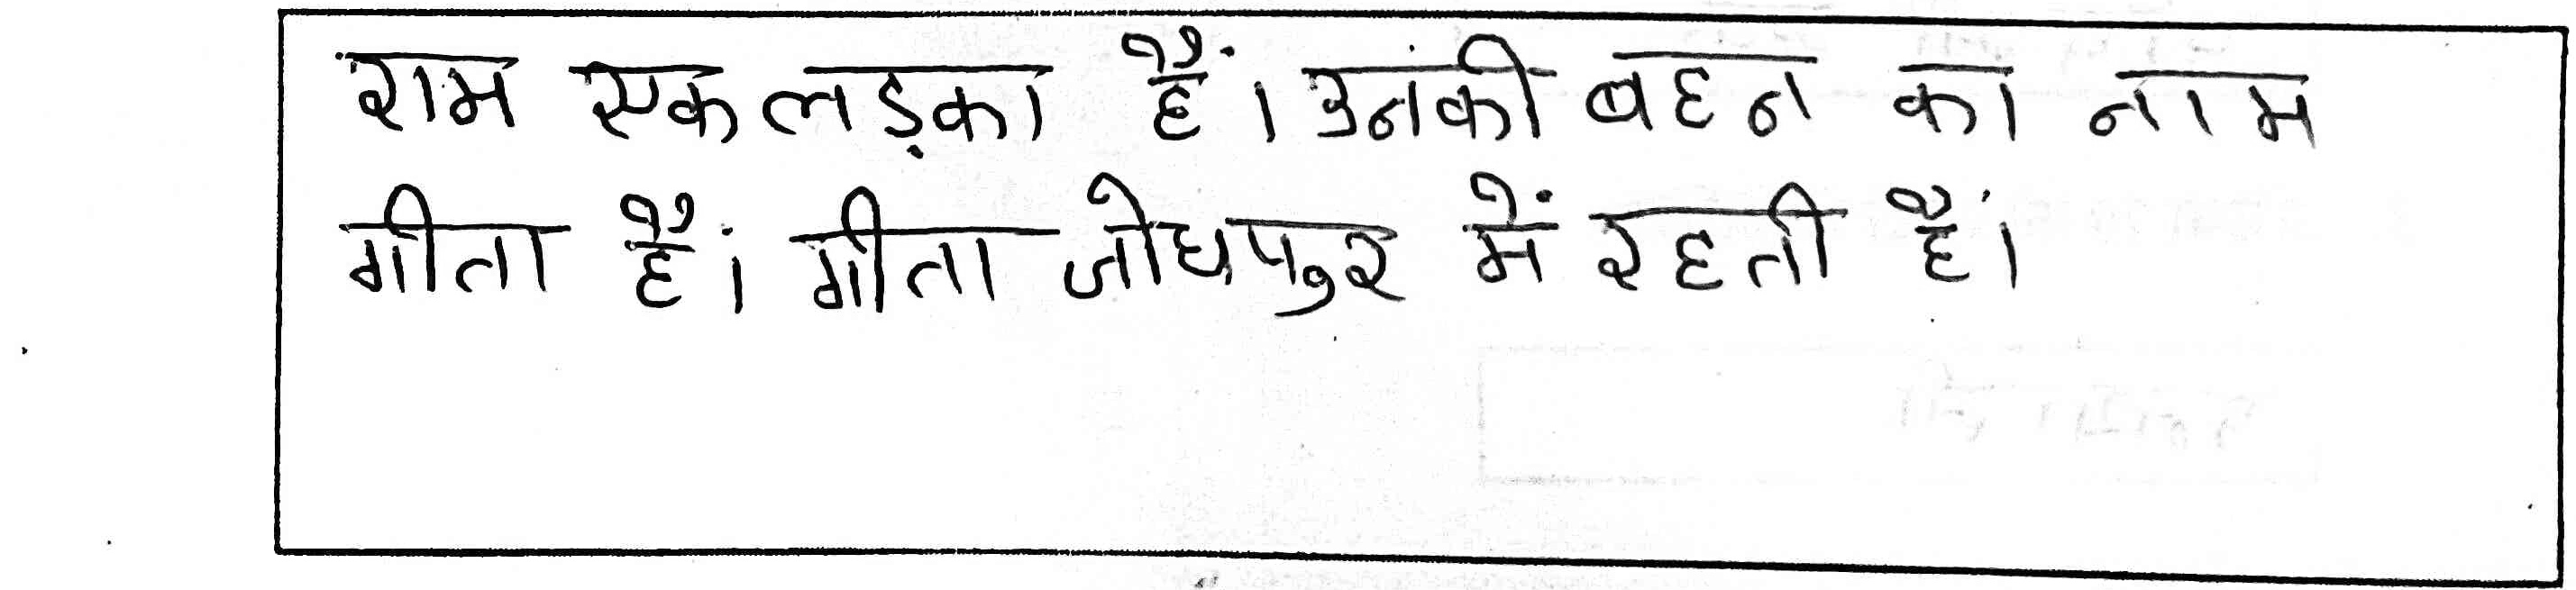 राम एक लड़का हैं। उनकी बहन का नाम
गीता हैं। गीता जोधपुर में रहती हैं।